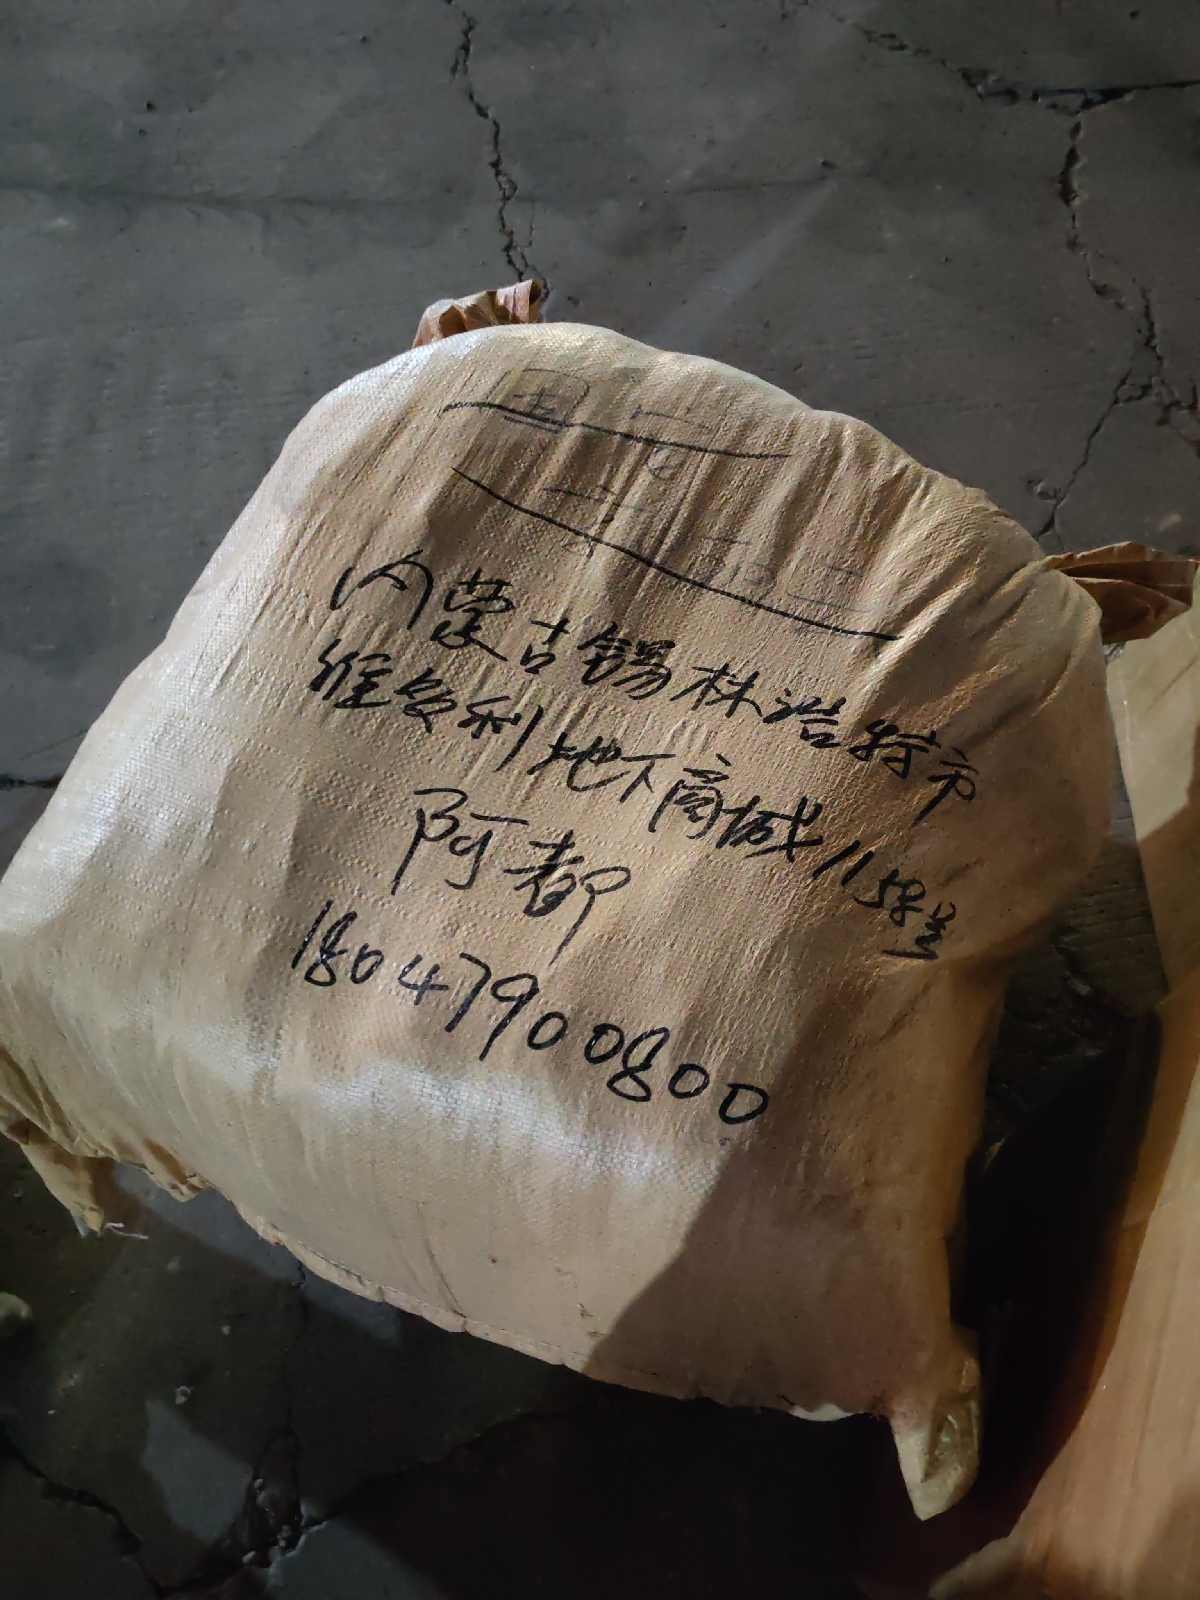 内蒙古锡林浩特市
维多利地下商城115号
阿都
18047900800